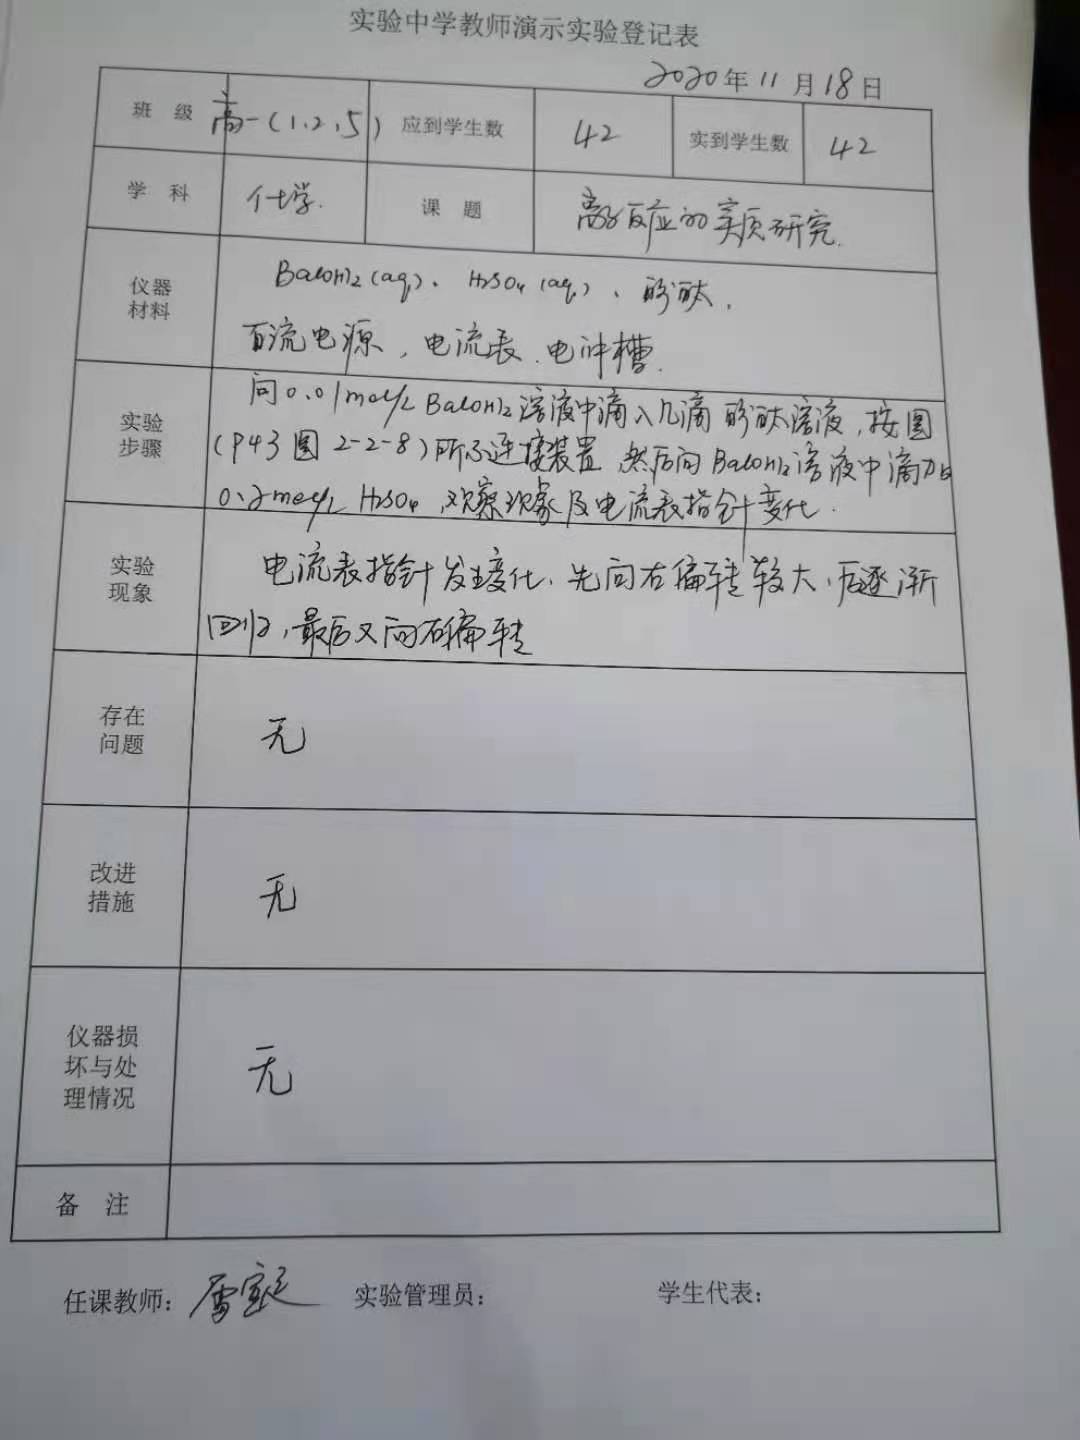 实验中学教师演示实验登记表
2020年11月18日
班 级 高一(1.2.5) 应到学生数 42 实到学生数 42
学 科 化学. 课 题 离子反应的实质研究.
仪器材料 Ba(OH)2(aq)、H2SO4(aq)、酚酞,
直流电源,电流表.电冲槽.
实验步骤 向0.01mol/L Ba(OH)2溶液中滴入几滴酚酞溶液,按图
(P43图2-2-8)所示连接装置 然后向Ba(OH)2溶液中滴加
0.2mol/L H2SO4,观察现象及电流表指针变化.
实验现象 电流表指针发生变化、先向右偏转较大,后逐渐
回归,最后又向右偏转
存在问题 无
改进措施 无
仪器损坏与处理情况 无
备 注
任课教师: 实验管理员: 学生代表: